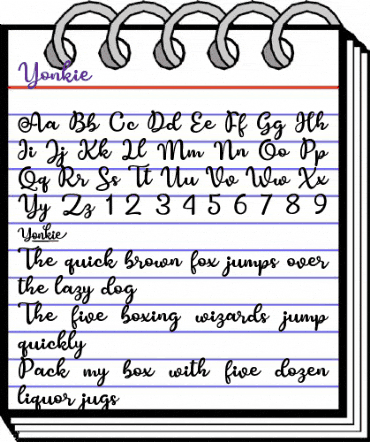 Yonkie
Aa Bb Cc Dd Ee Ff Gg Hh
Ii Jj Kk Ll Mm Nn Oo Pp
Qq Rr Ss Tt Uu Vv Ww Xx
Yy Zz 1 2 3 4 5 6 7 8 9
Yonkie
The quick brown fox jumps over
the lazy dog
The five boxing wizards jump
quickly
Pack my box with five dozen
liquor jugs